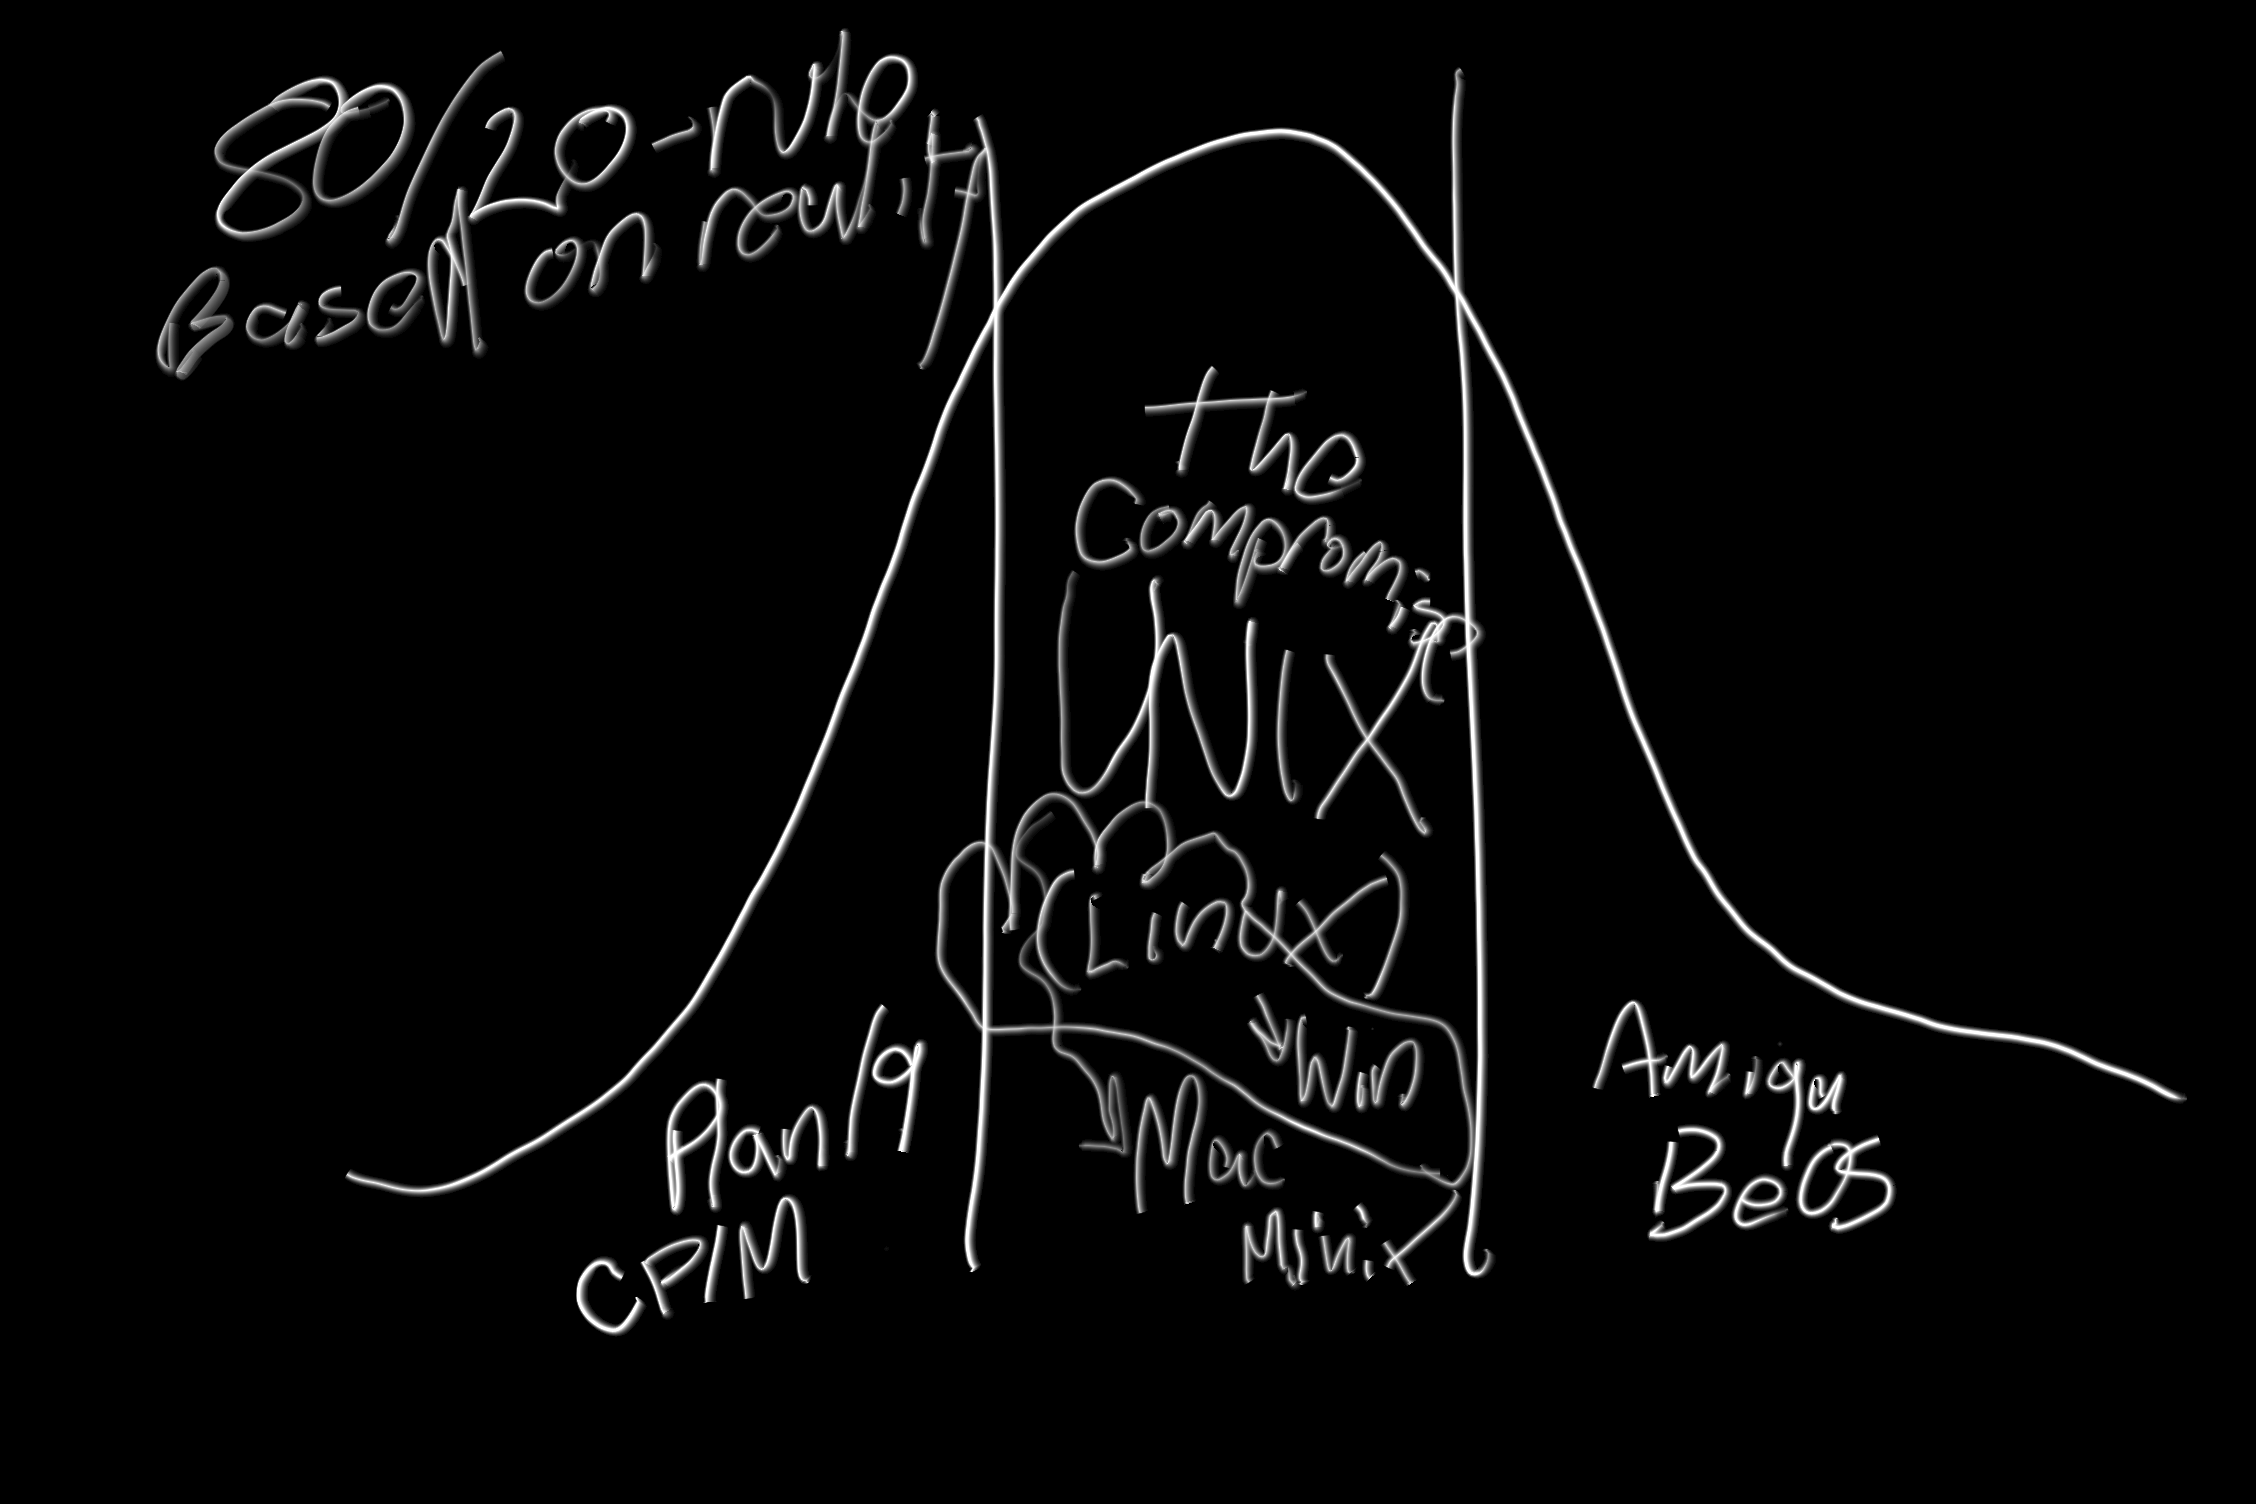 80/20-rule
Based on reality
The
Compromise
UNIX
(Linux)
Win
Mac
Minix
Plan/9
CP/M
Amiga
BeOS